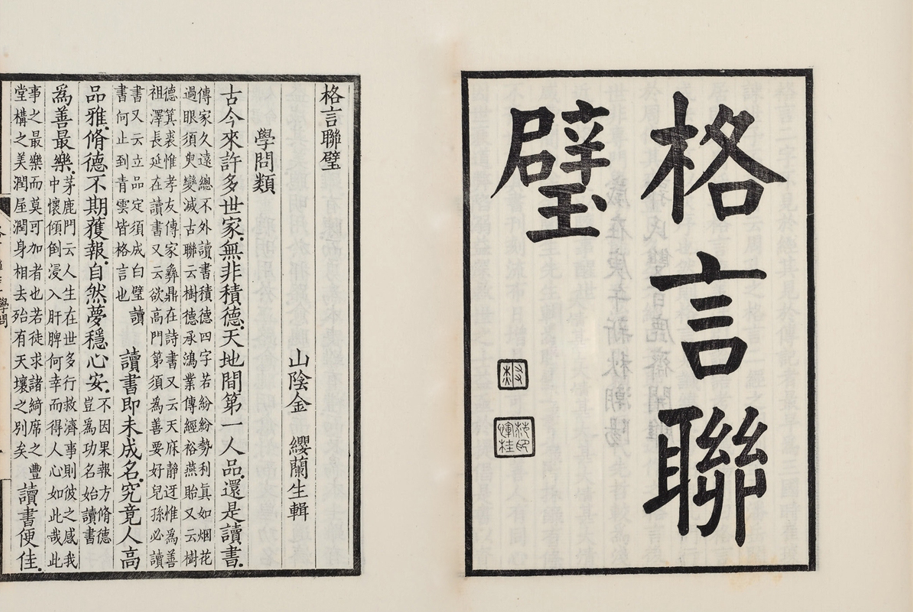 格言聯
璧
格言聯璧
山陰金 纓蘭生輯
學問類
古今來許多世家.無非積德.天地間第一人品.還是讀書.
傳家久遠總不外讀書積德四字若紛紛勢利真如烟花
過眼須臾變滅古聯云樹德承鴻業傳經裕燕貽又云樹
德箕裘惟孝友傳家彝鼎在詩書又云天庥靜迓惟為善
祖澤長延在讀書又云欲高門第須為善要好兒孫必讀
書又云立品定須成白璧讀
書何止到青雲皆格言也
讀書即未成名.究竟人高
品雅.脩德不期獲報.自然夢穩心安.
不因果報方脩德
豈為功名始讀書
為善最樂.
茅鹿門云人生在世多行救濟事則彼之感我
中懷傾倒浸入肝脾何幸而得人心如此哉此
事之最樂而莫可加者也若徒求諸綺席之豐
堂構之美潤屋潤身相去殆有天壤之別矣
讀書便佳.